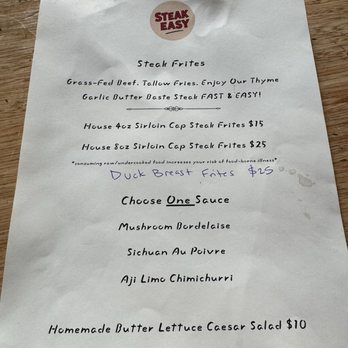 STEAK
EASY
Steak Frites
Grass-Fed Beef. Tallow Fries. Enjoy Our Thyme
Garlic Butter Baste Steak FAST & EASY!
House 4oz Sirloin Cap Steak Frites $15
House 8oz Sirloin Cap Steak Frites $25
*consuming raw/undercooked food increases your risk of food-borne illness*
Duck Breast Frites $25
Choose One Sauce
Mushroom Bordelaise
Sichuan Au Poivre
Aji Limo Chimichurri
Homemade Butter Lettuce Caesar Salad $10